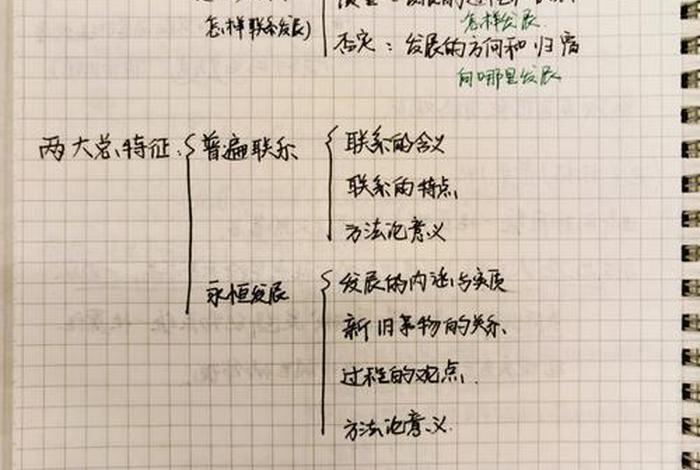 怎样发展
怎样联系发展)
否定：发展的方向和归宿
向哪里发展
两大总特征：
普遍联系
联系的含义
联系的特点
方法论意义
永恒发展
发展的内涵与实质
新旧事物的关系
过程的观点.
方法论意义.